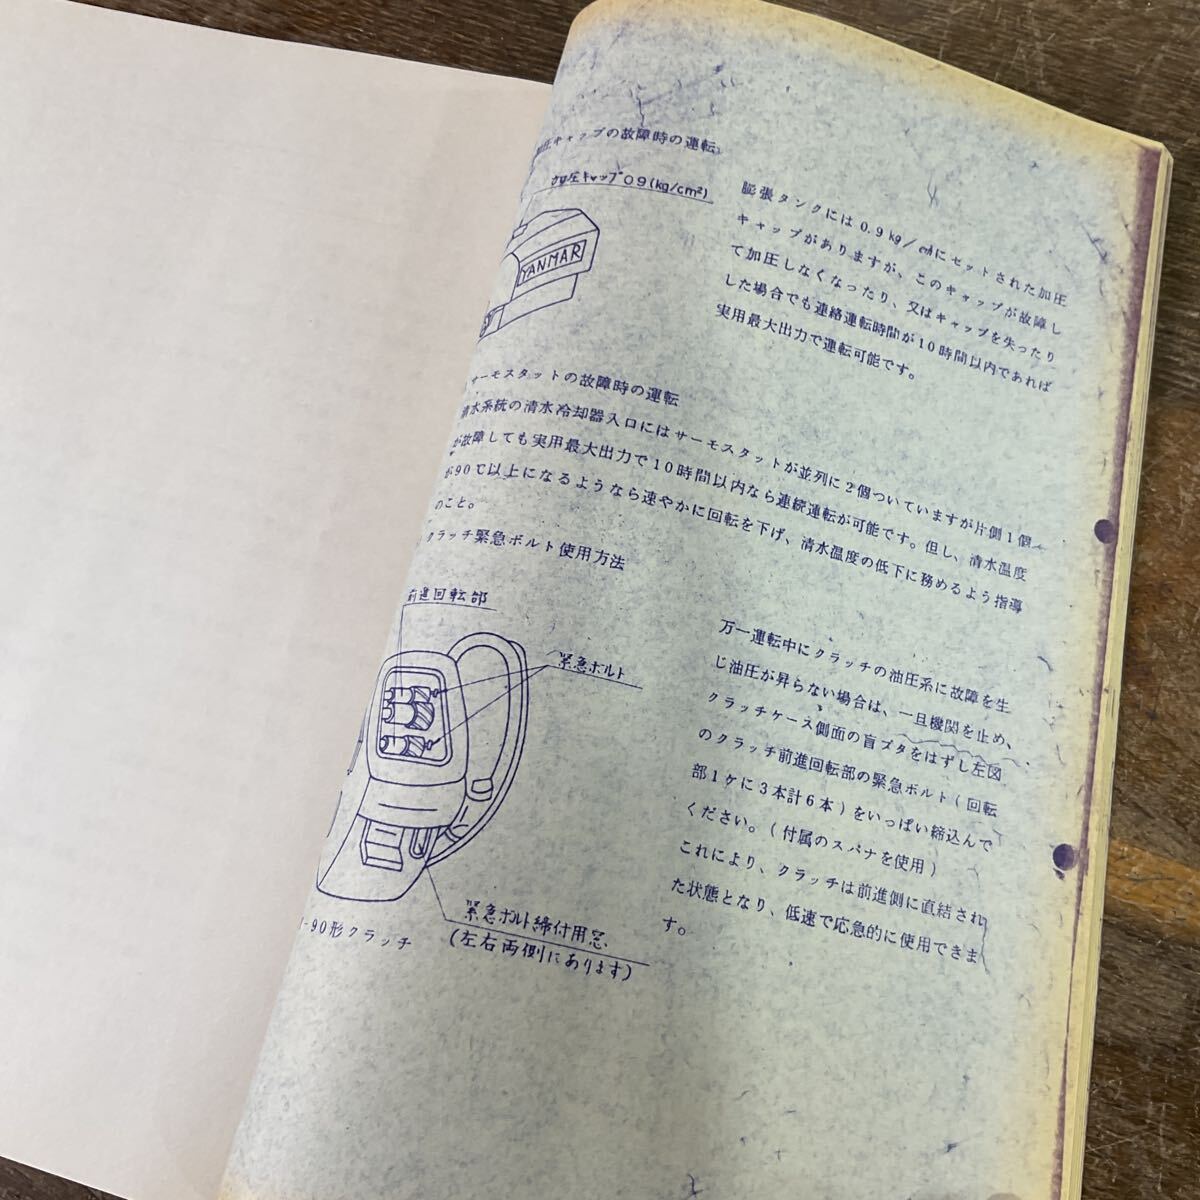 加圧キャップの故障時の運転
加圧キャップ09(kg/cm²)
YANMAR
膨張タンクには0.9kg/㎠にセットされた加圧
キャップがありますが、このキャップが故障し
て加圧しなくなったり、又はキャップを失ったり
した場合でも連絡運転時間が10時間以内であれば
実用最大出力で運転可能です。
サーモスタットの故障時の運転
清水系統の清水冷却器入口にはサーモスタットが並列に2個ついていますが片側1個
が故障しても実用最大出力で10時間以内なら連続運転が可能です。但し、清水温度
が90℃以上になるようなら速やかに回転を下げ、清水温度の低下に務めるよう指導
のこと。
クラッチ緊急ボルト使用方法
前進回転部
緊急ボルト
緊急ボルト締付用窓
(左右両側にあります)
-90形クラッチ
万一運転中にクラッチの油圧系に故障を生
じ油圧が昇らない場合は、一旦機関を止め、
クラッチケース側面の盲ブタをはずし左図
のクラッチ前進回転部の緊急ボルト(回転
部1ケに3本計6本)をいっぱい締込んで
ください。(付属のスパナを使用)
これにより、クラッチは前進側に直結され
た状態となり、低速で応急的に使用できま
す。